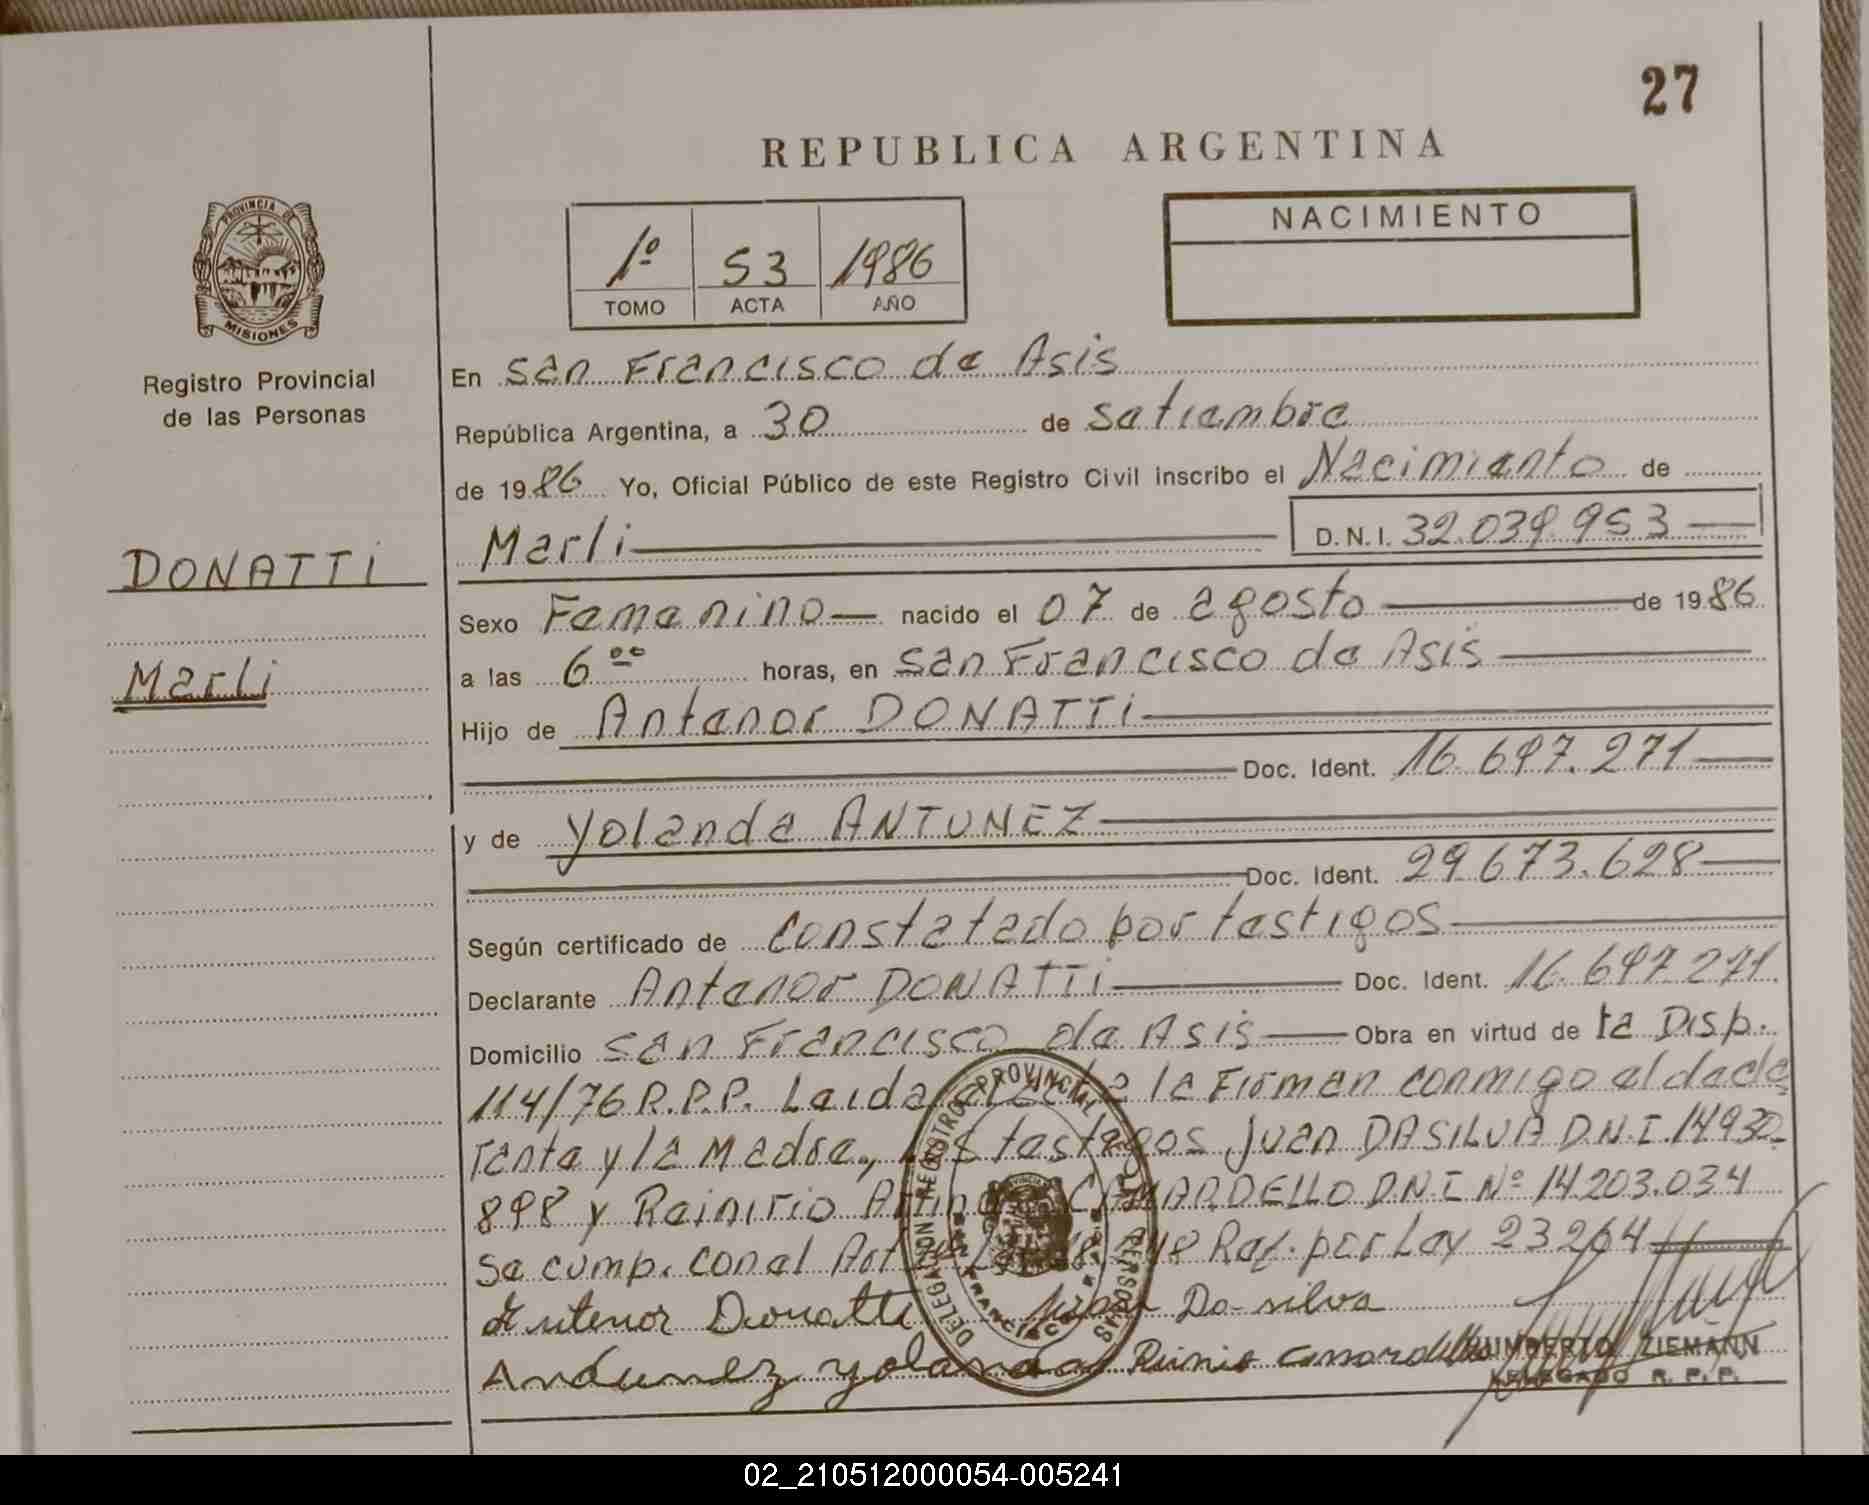 27
REPUBLICA ARGENTINA
PROVINCIA DE
MISIONES
Registro Provincial
de las Personas
1º 53 1986
TOMO ACTA AÑO
NACIMIENTO
En San Francisco de Asis
República Argentina, a 30 de Setiembre
de 1986 Yo, Oficial Público de este Registro Civil inscribo el Nacimiento de
Marli D.N.I. 32.039.953
DONATTI
Marli
Sexo Femenino nacido el 07 de agosto de 1986
a las 6 00 horas, en San Francisco de Asis
Hijo de Antenor DONATTI
Doc. Ident. 16.697.271
y de Yolanda ANTUNEZ
Doc. Ident. 29.673.628
Según certificado de Constatado por testigos
Declarante Antenor DONATTI Doc. Ident. 16.697.271
Domicilio San Francisco de Asis Obra en virtud de la Disp.
114/76 R.P.P. Leida el la Firman conmigo el decla
rante y la Madre, testigos Juan DASILVA D.N.I. 14.930.
898 y Reinirio CAMARDELLO D.N.I Nº 14.203.034
Se cump. con el Art Ref. por Ley 23264
Antenor Donatti Juan Da silva
Andunez yolanda Rinirio Camardello
HUMBERTO ZIEMANN
DELEGADO R. P. P.
DELEGACION REGISTRO PROVINCIAL DE LAS PERSONAS
SAN FRANCISCO
02_210512000054-005241